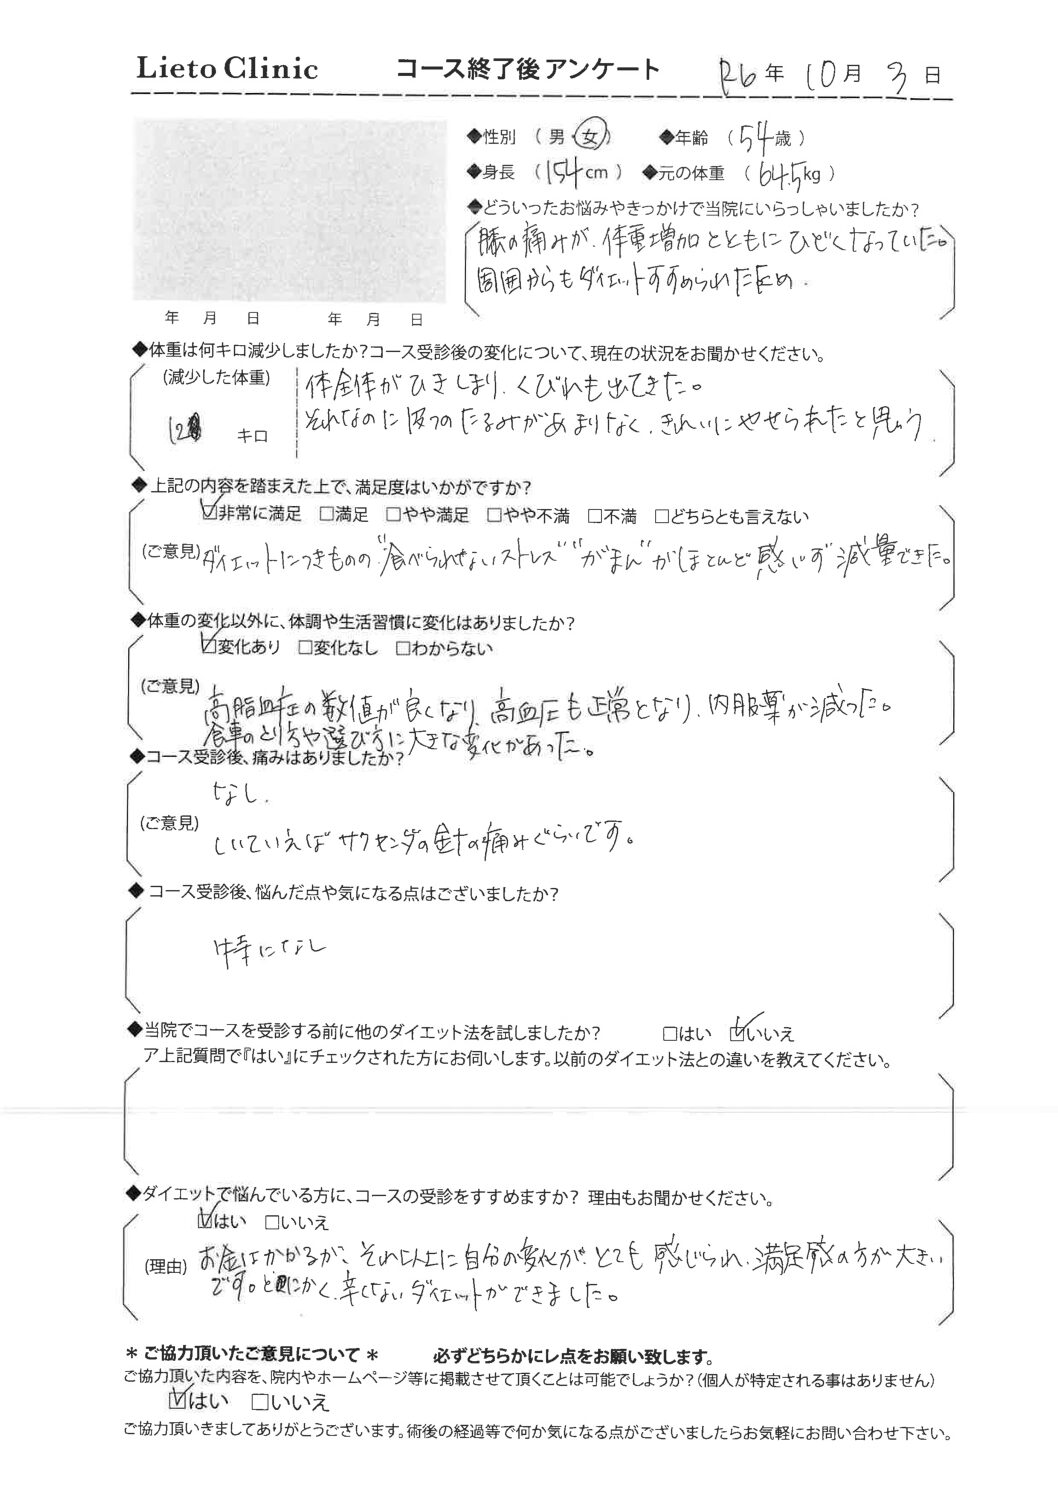 Lieto Clinic コース終了後アンケート R6年 10月 3日
◆性別 （ 男・女 ） ◆年齢 （ 54歳 ）
◆身長 （ 154cm ） ◆元の体重 （ 64.5kg ）
◆どういったお悩みやきっかけで当院にいらっしゃいましたか？
膝の痛みが、体重増加とともにひどくなっていた。
周囲からもダイエットすすめられたため。
年 月 日 年 月 日
◆体重は何キロ減少しましたか？コース受診後の変化について、現在の状況をお聞かせください。
(減少した体重) 体全体がひきしまり、くびれも出てきた。
12 キロ それなのに皮ふのたるみがあまりなく、きれいにやせられたと思う。
◆上記の内容を踏まえた上で、満足度はいかがですか？
☑非常に満足 □満足 □やや満足 □やや不満 □不満 □どちらとも言えない
(ご意見) ダイエットにつきものの"食べられないストレス" "がまん"がほとんど感じず減量できた。
◆体重の変化以外に、体調や生活習慣に変化はありましたか？
☑変化あり □変化なし □わからない
(ご意見) 高脂血症の数値が良くなり、高血圧も正常となり、内服薬が減った。
食事のとり方や選び方に大きな変化があった。
◆コース受診後、痛みはありましたか？
なし.
(ご意見) しいていえばサクセンダの針の痛みぐらいです。
◆コース受診後、悩んだ点や気になる点はございましたか？
特になし
◆当院でコースを受診する前に他のダイエット法を試しましたか？ □はい ☑いいえ
ア上記質問で『はい』にチェックされた方にお伺いします。以前のダイエット法との違いを教えてください。
◆ダイエットで悩んでいる方に、コースの受診をすすめますか？ 理由もお聞かせください。
☑はい □いいえ
(理由) お金はかかるが、それ以上に自分の変化がとても感じられ、満足感の方が大きい
です。とにかく、辛くないダイエットができました。
＊ご協力頂いたご意見について＊ 必ずどちらかにレ点をお願い致します。
ご協力頂いた内容を、院内やホームページ等に掲載させて頂くことは可能でしょうか？(個人が特定される事はありません)
☑はい □いいえ
ご協力頂いきましてありがとうございます。術後の経過等で何か気になる点がございましたらお気軽にお問い合わせ下さい。